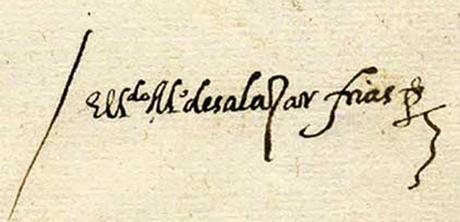 El ldo Al.o de salazar frias